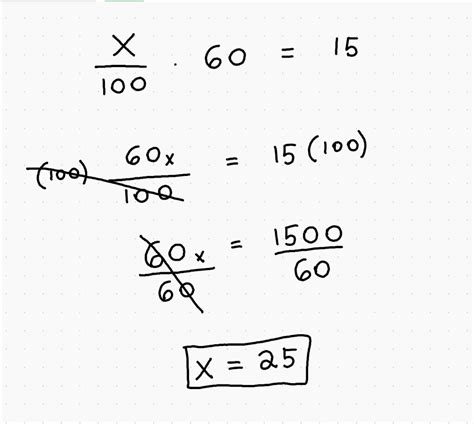 x/100 · 60 = 15
(100) 60x/100 = 15 (100)
60x/60 = 1500/60
x = 25